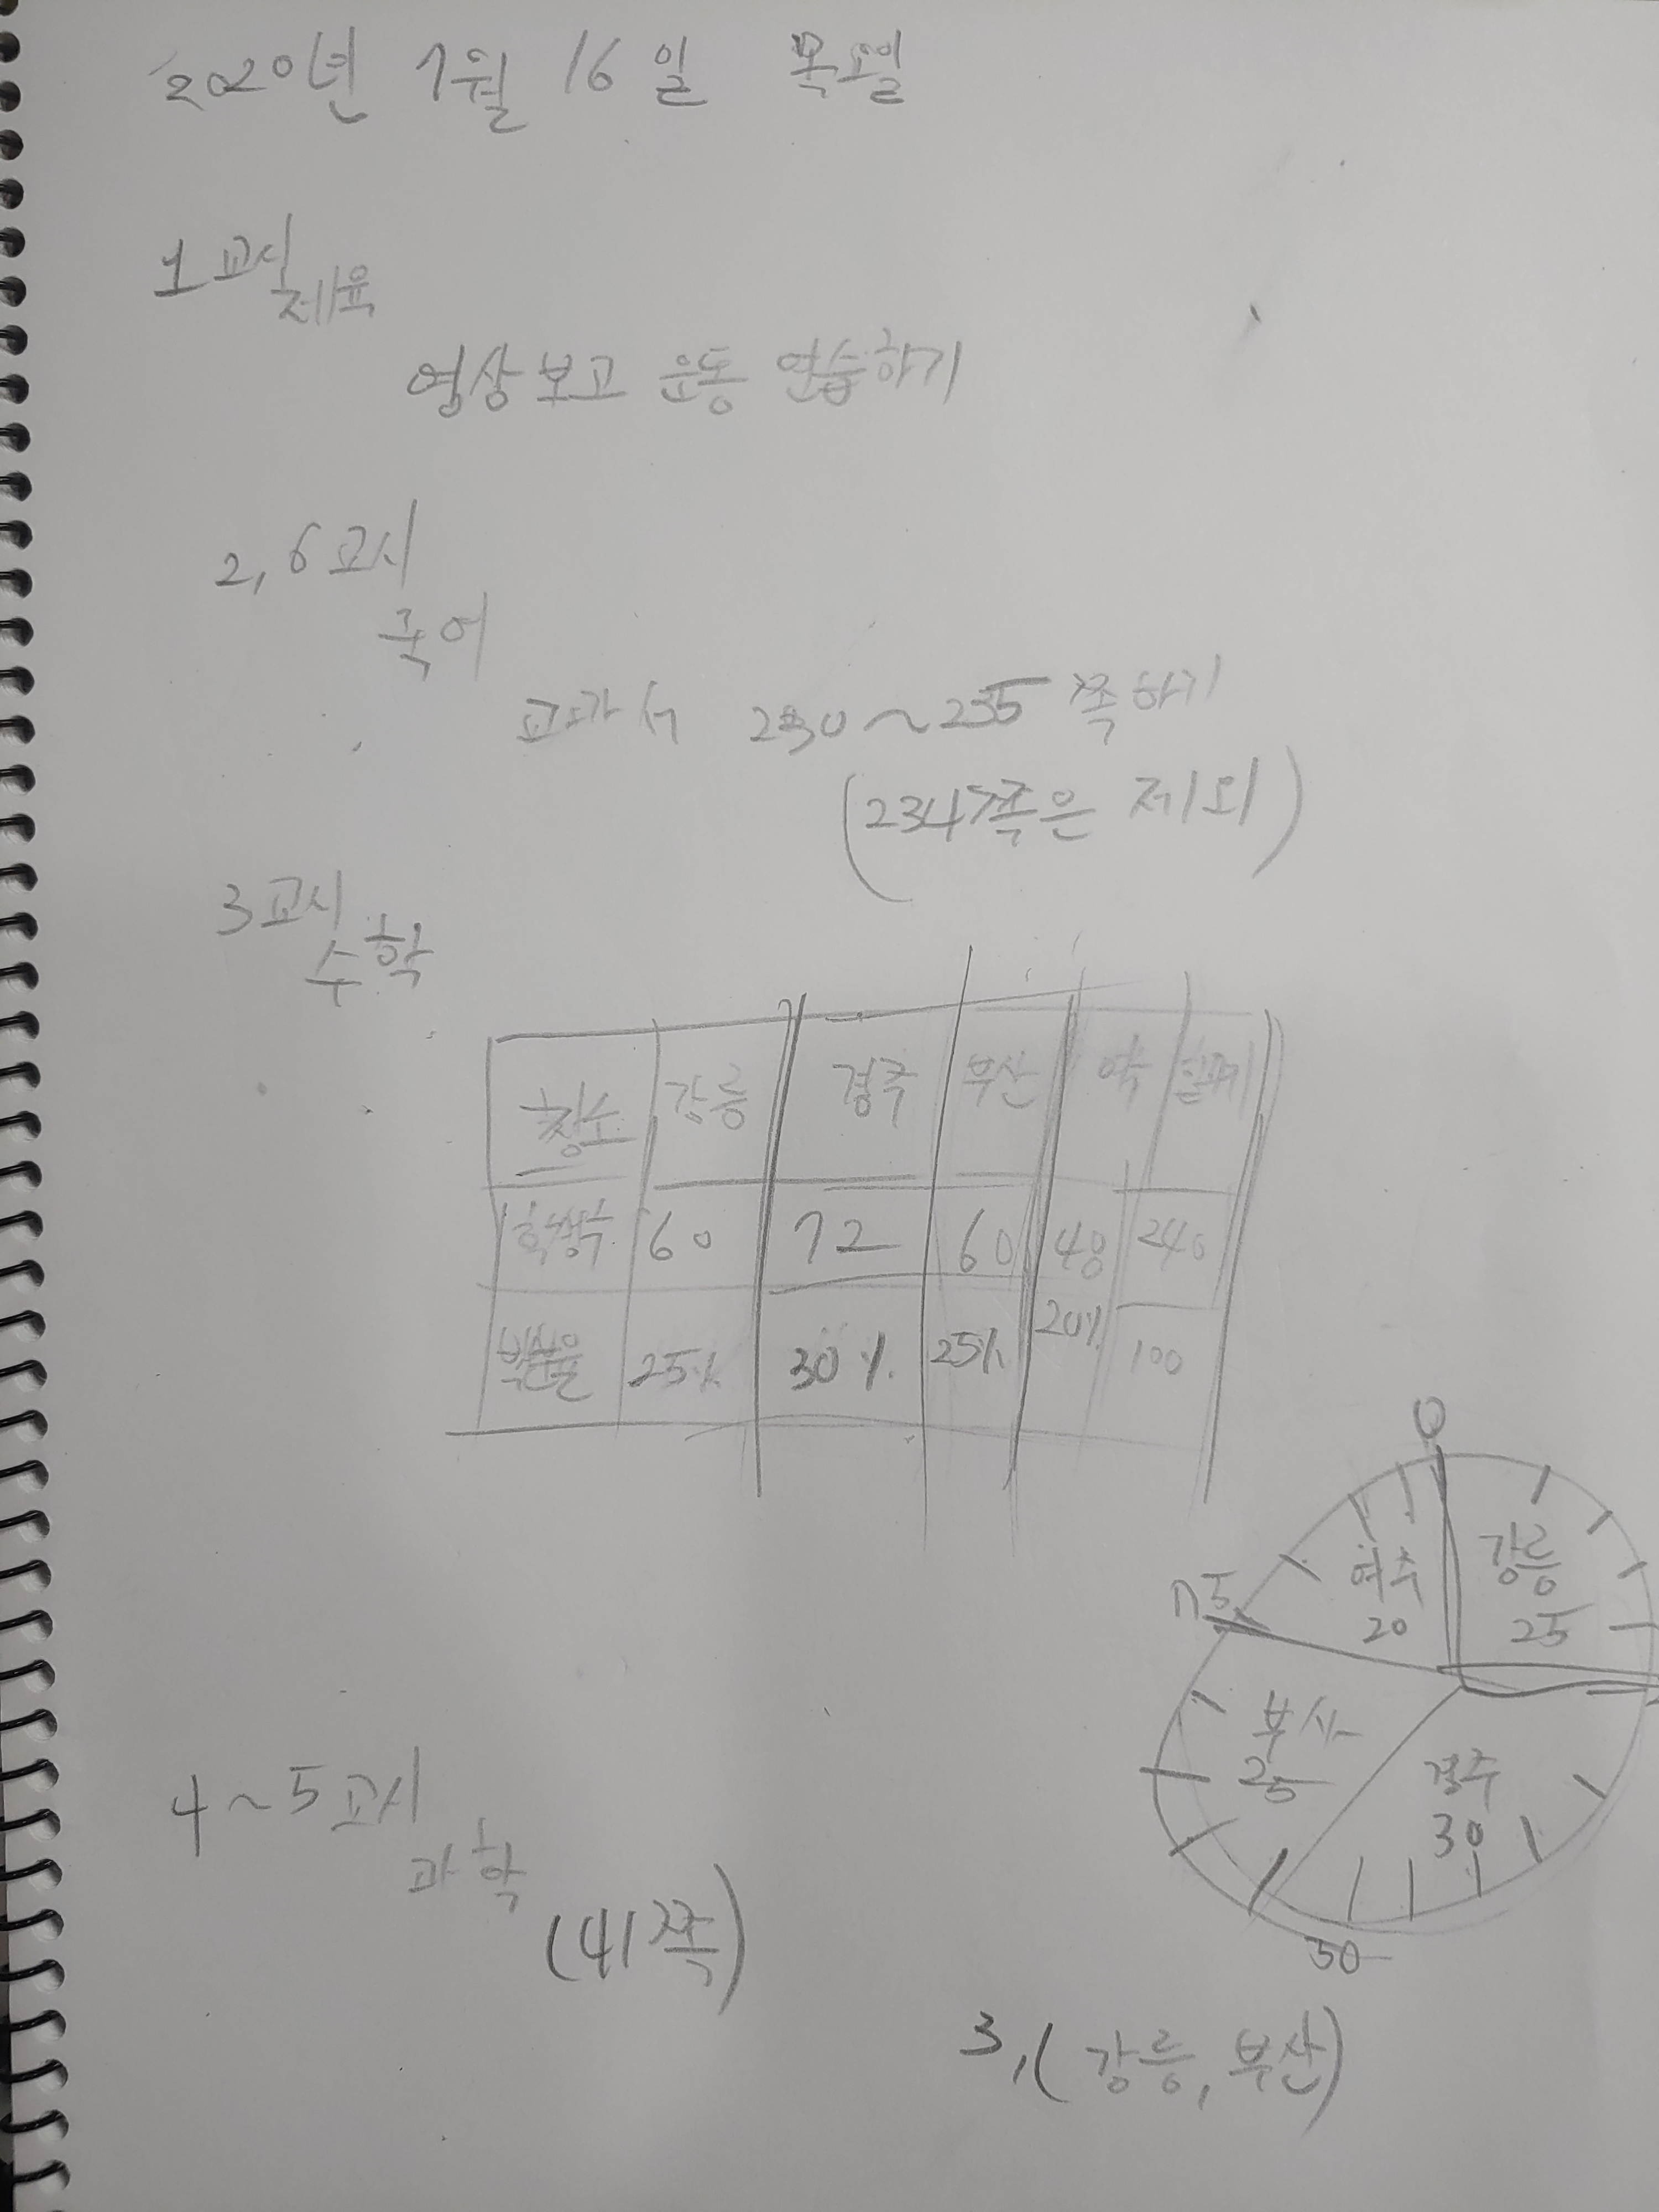 2020년 7월 16일 목요일
1교시
체육
영상보고 운동 연습하기
2, 6교시
국어
교과서 230~235쪽하기
(234쪽은 제외)
3교시
수학
강릉 경주 부산
학생수 60 72 60 48 240
백분율 25% 30% 25% 20% 100
0
여주 강릉
20 25
75
부산
25
경주
30
50
4~5교시
과학
(41쪽)
3, (강릉, 부산)